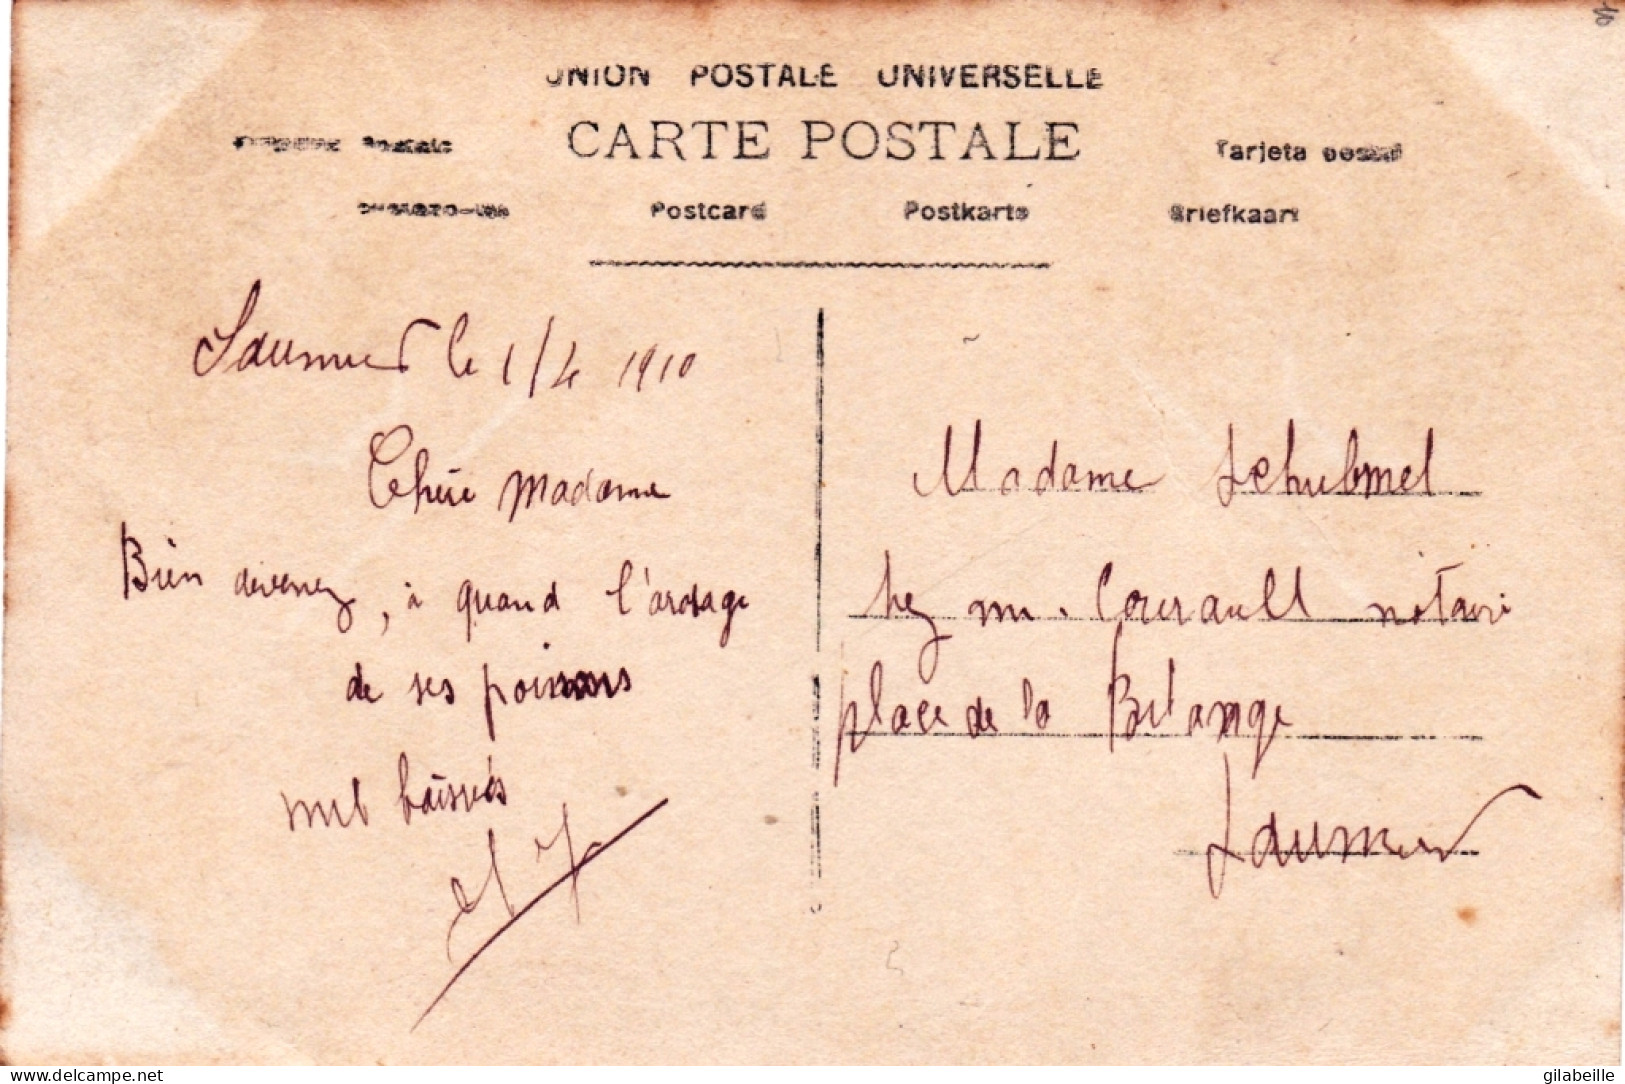 UNION POSTALE UNIVERSELLE
CARTE POSTALE
Postale
Tarjeta postal
Postcard
Postkarte
Briefkaart
Saumur le 1/4 1910
Chère Madame
Bien devenez, à quand l'arosage
de ses poissons
mil baisers
Madame Schubmel
chez m. Courault notaire
place de la Bilange
Saumur
www.delcampe.net
gilabeille